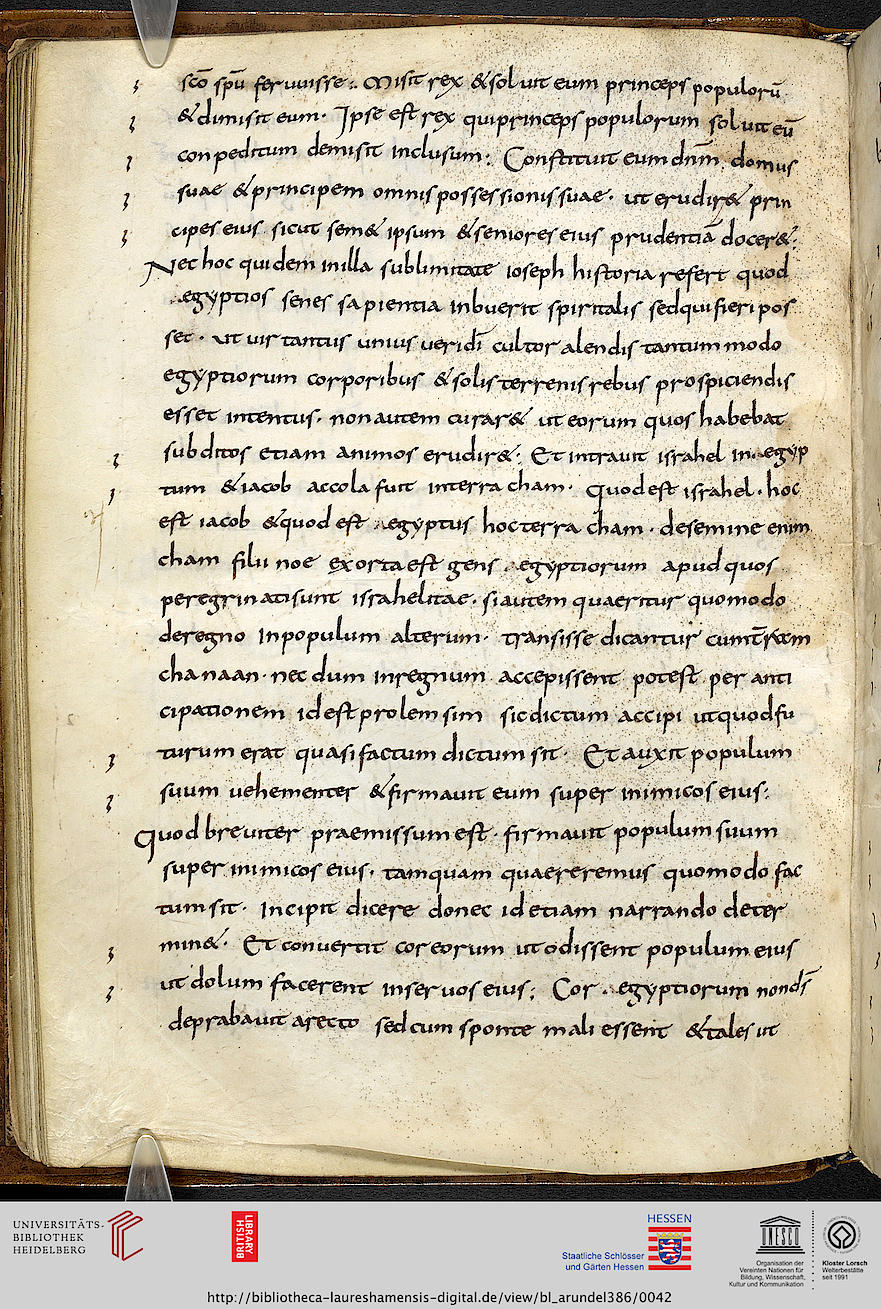 scō spū feruuisse:. Misit rex & soluit eum princeps populorū
& dimisit eum. Ipse est rex qui princeps populorum soluit eū
conpeditum demisit inclusum:. Constituit eum dnm̄ domus
suae & principem omnis possessionis suae. ut erudir& prin
cipes eius sicut sem& ipsum & seniores eius prudentiā docer&:
Nec hoc quidem in illa sublimitate ioseph historia refert quod
egyptios senes sapientia inbuerit spiritalis sed qui fieri pos
set. ut uir tantus unius ueri dī cultor alendis tantummodo
egyptiorum corporibus & solis terrenis rebus prospiciendis
esset intentus. non autem curar& ut eorum quos habebat
subditos etiam animos erudir&: Et intrauit israhel in egyp
tum & iacob accola fuit in terra cham. Quod est israhel. hoc
est iacob & quod est egyptus hoc terra cham. de semine enim
cham filii noe exorta est gens egyptiorum apud quos
peregrinati sunt israhelitae. si autem quaeritur quomodo
de regno in populum alterum. transisse dicantur cum
chanaan. nec dum in regnum accepissent potest per anti
cipationem id est prolemsim sic dictum accipi ut quod fu
turum erat quasi factum dictum sit. Et auxit populum
suum uehementer & firmauit eum super inimicos eius:
Quod breuiter praemissum est. firmauit populum suum
super inimicos eius. tamquam quaereremus quomodo fac
tum sit. Incipit dicere donec id etiam narrando deter
min&. Et conuertit cor eorum ut odissent populum eius
ut dolum facerent in seruos eius; Cor egyptiorum non dš
deprabauit a recto sed cum sponte mali essent & tales ut
UNIVERSITÄTS-
BIBLIOTHEK
HEIDELBERG
BRITISH
LIBRARY
HESSEN
Staatliche Schlösser
und Gärten Hessen
UNESCO
Organisation der
Vereinten Nationen für
Bildung, Wissenschaft,
Kultur und Kommunikation
Kloster Lorsch
Welterbestätte
seit 1991
http://bibliotheca-laureshamensis-digital.de/view/bl_arundel386/0042